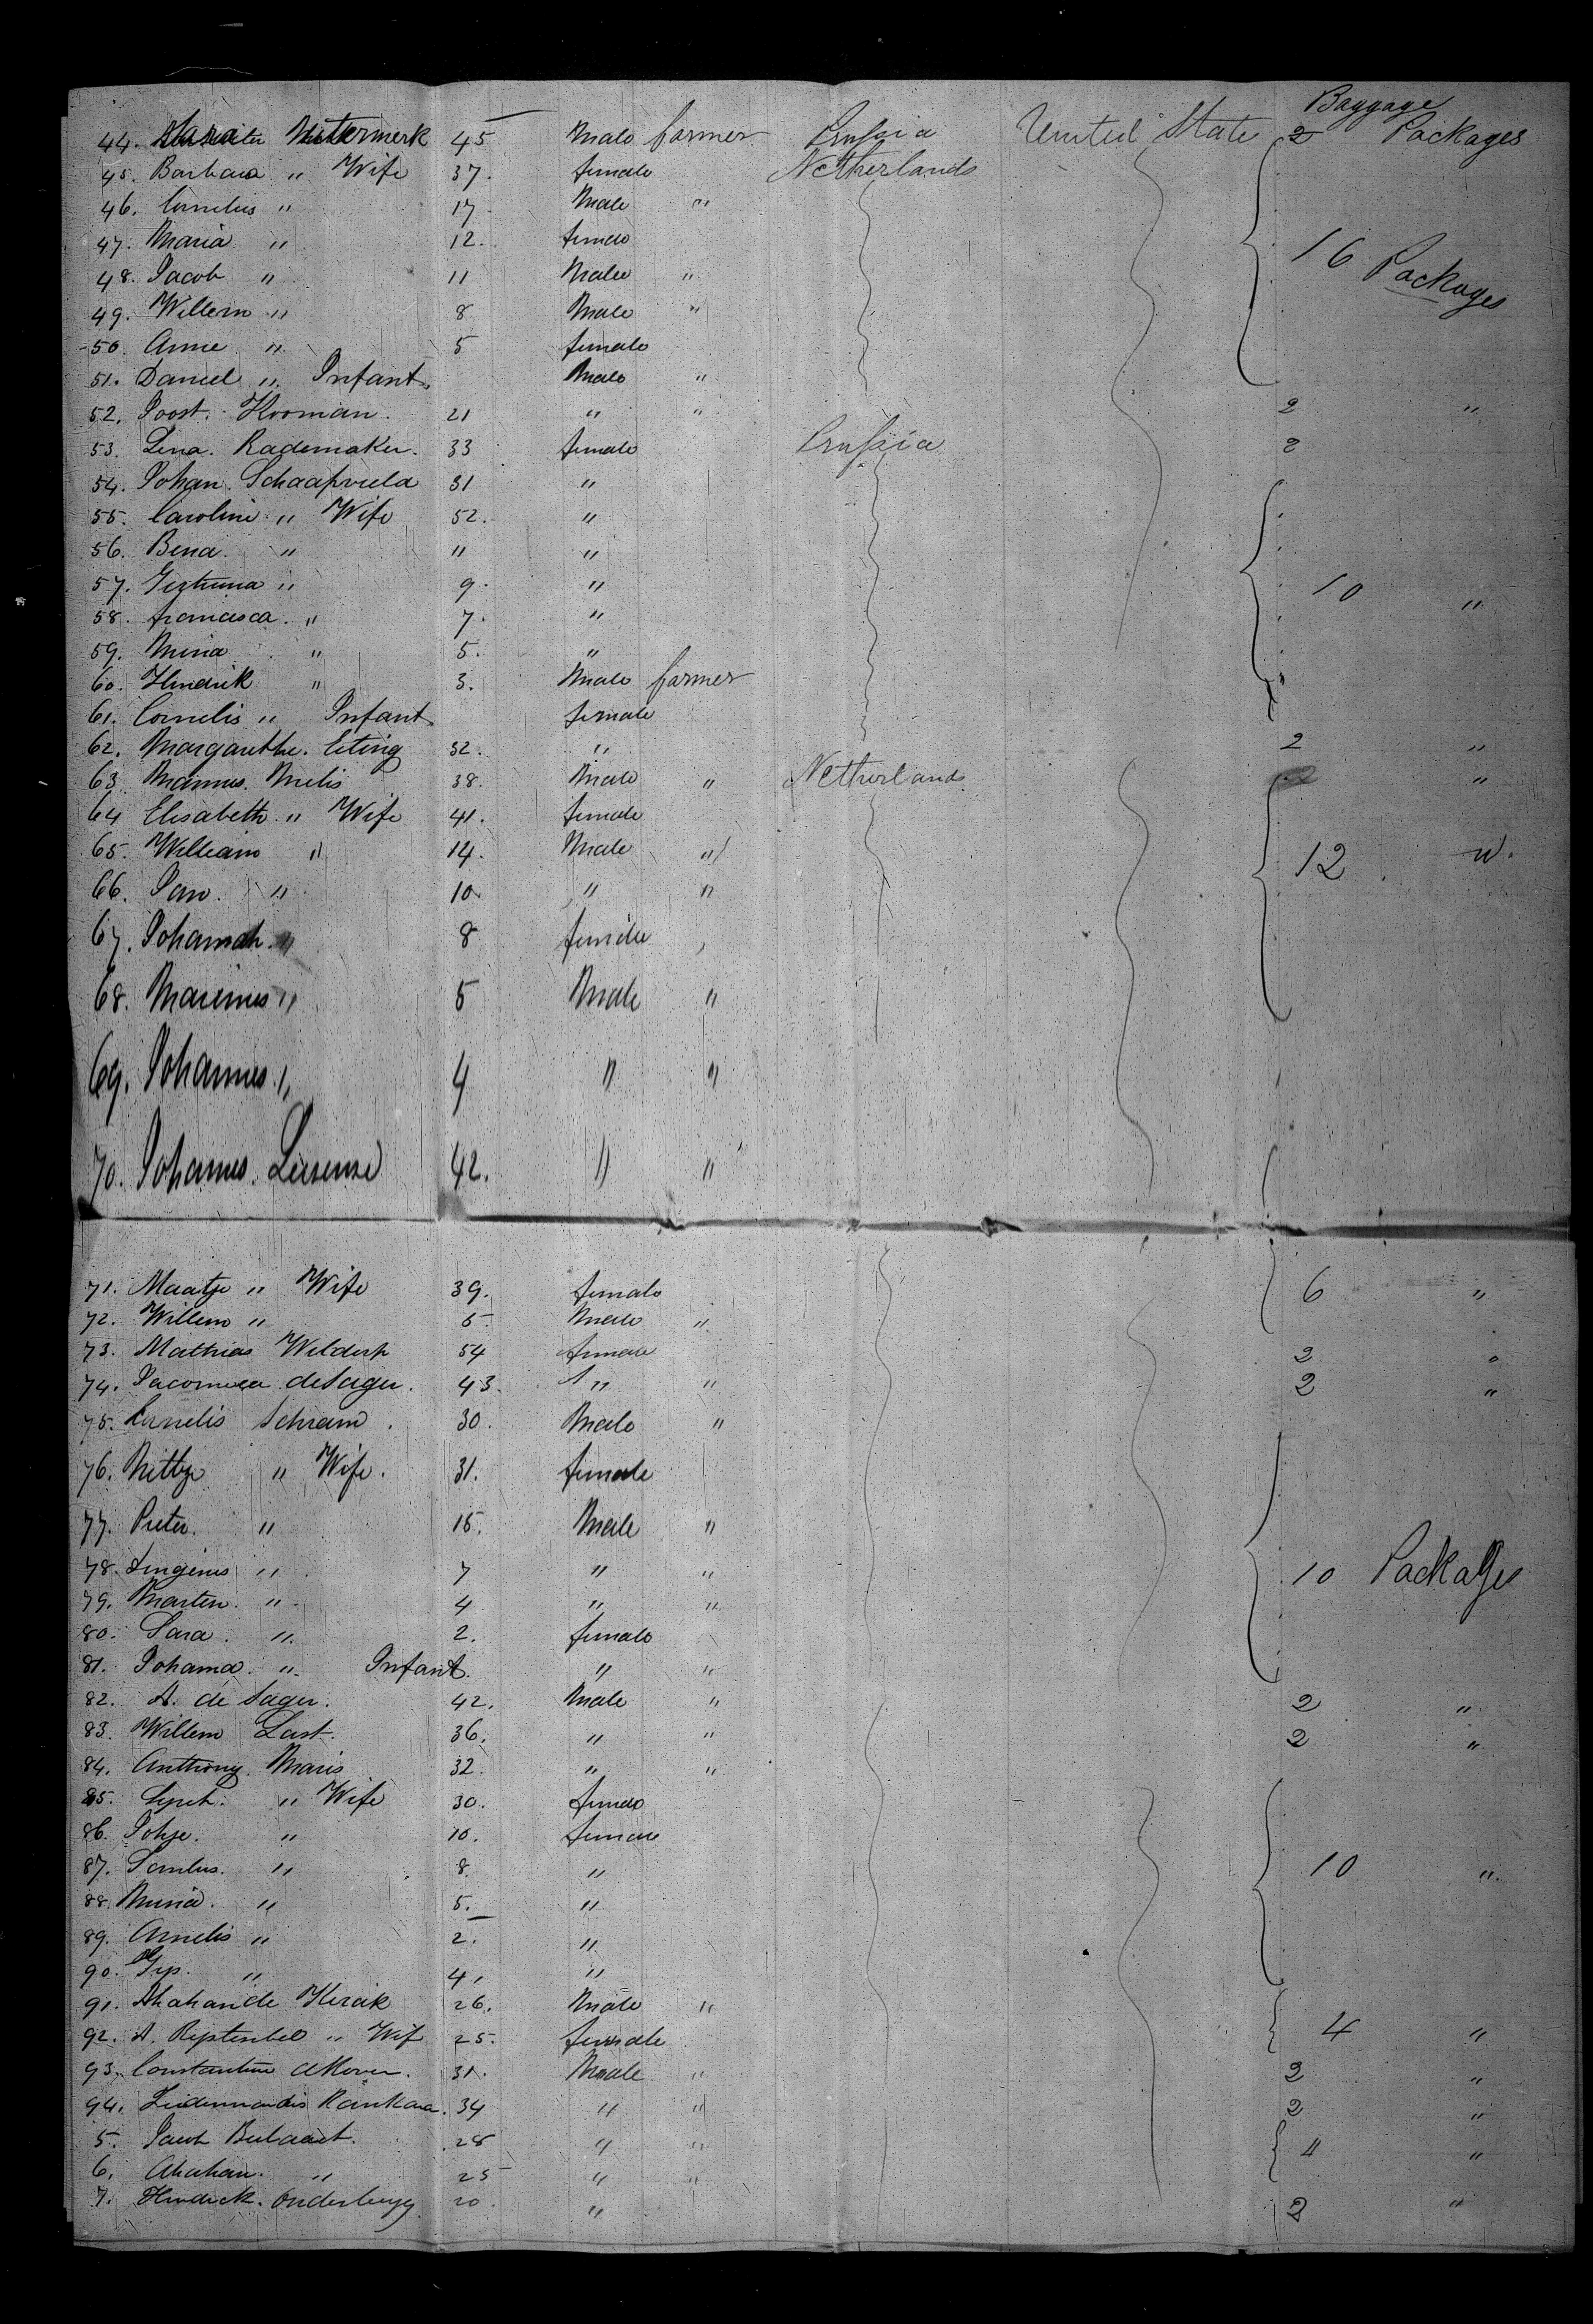 Baggage
44. Uitermerk 45 Male farmer Prussia United State 2 Packages
45. Barbara " Wife 37. female Netherlands
46. Cornelius " 17 Male "
47. Maria " 12. female
48. Jacob " 11 Male "
49. Willem " 8 Male "
16 Packages
50. Anne " 5 female
51. Daniel " Infant. Male "
52. Joost. Hooman. 21 " " 2 "
53. Lena. Rademaker. 33 female Prussia 2
54. Johan. Schaapveld 31 "
55. Caroline " Wife 52. "
56. Bena. " 11 "
57. " 9. " 10 "
58. francisca. " 7. "
59. Mina " 5. "
60. Hendrik " 3. Male farmer
61. Cornelis " Infant female
62. Margarethe. Eeting 32. " 2 "
63 Mannus. Melis 38. Male " Netherland 2 "
64 Elisabeth. " Wife 41. female
65. William " 14. Male " 12 "
66. Jan. " 10. " "
67. Johannah. " 8 female
68. Marinus " 5 Male "
69. Johannes. " 4 " "
70. Johannes. 42. " "
71. Maatje " Wife 39. female 6 "
72. Willem " 5. Male "
73. Mathias 54 female 2 "
74. de Sager. 43. " " 2 "
75. Cornelis Schram. 30. Male "
76. " Wife. 31. female
77. Pieter. " 15. Male "
78. " 7 " " 10 Packages
79. Marten. " 4 " "
80. Sara. " 2. female
81. Johanna. " Infant. " "
82. A. de Sager. 42. Male " 2 "
83. Willem Last. 36. " " 2 "
84. Anthony. Maris 32. " "
85. " Wife 30. female
86. " 10. female
87. " 8. " 10 "
88. Mina. " 5. "
89. " 2. "
90. " 4. "
91. 26. Male "
92. A. " Wif 25. female 4 "
93. Constantin 31. Male " 2 "
94. 34 " " 2 "
5. Jacob 28 " " 4 "
6. " 25 " "
7. Hendrick. Onderbergg 20. " 2 "